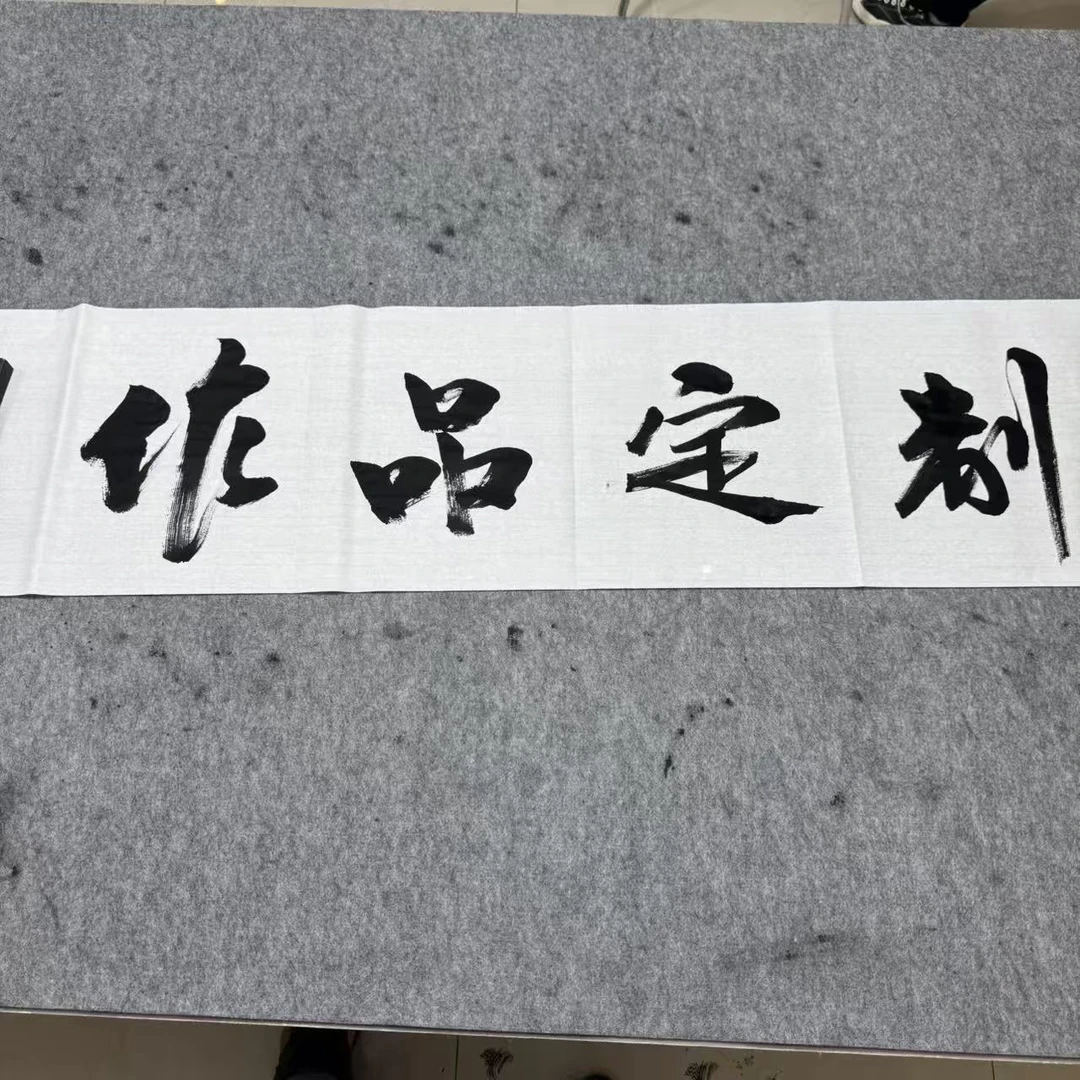 作品定制